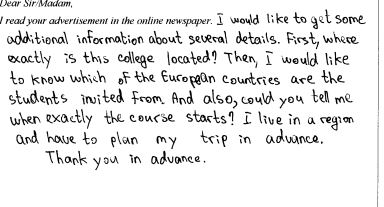 Dear Sir/Madam,
I read your advertisement in the online newspaper. I would like to get some
additional information about several details. First, where
exactly is this college located? Then, I would like
to know which of the European countries are the
students invited from. And also, could you tell me
when exactly the course starts? I live in a region
and have to plan my trip in advance.
Thank you in advance.